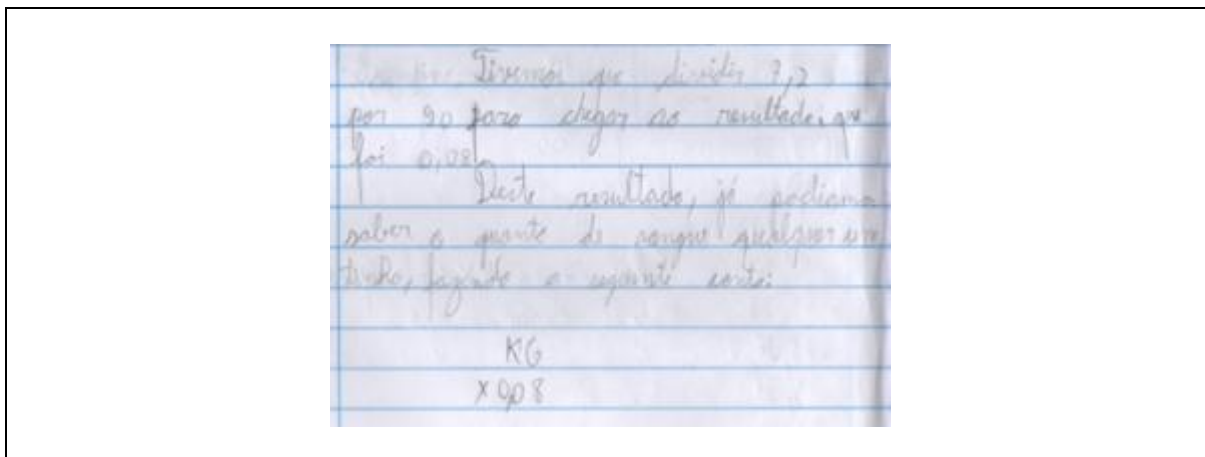 Tivemos que dividir 7,2
por 90 para chegar ao resultado, que
foi 0,08.
Deste resultado, já podiamos
saber o quanto de sangue qualquer um
tinha, fazendo a seguinte conta:
KG
X 0,08